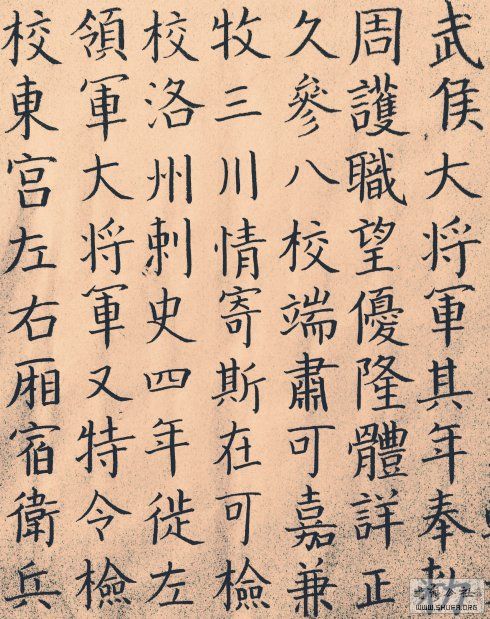 武侯大将軍其年奉
周護職望優隆體詳正
久參八校端肅可嘉兼
牧三川情寄斯在可檢
校洛州刺史四年徙左
領軍大将軍又特令檢
校東宫左右厢宿衛兵
WWW.SHUFA.ORG